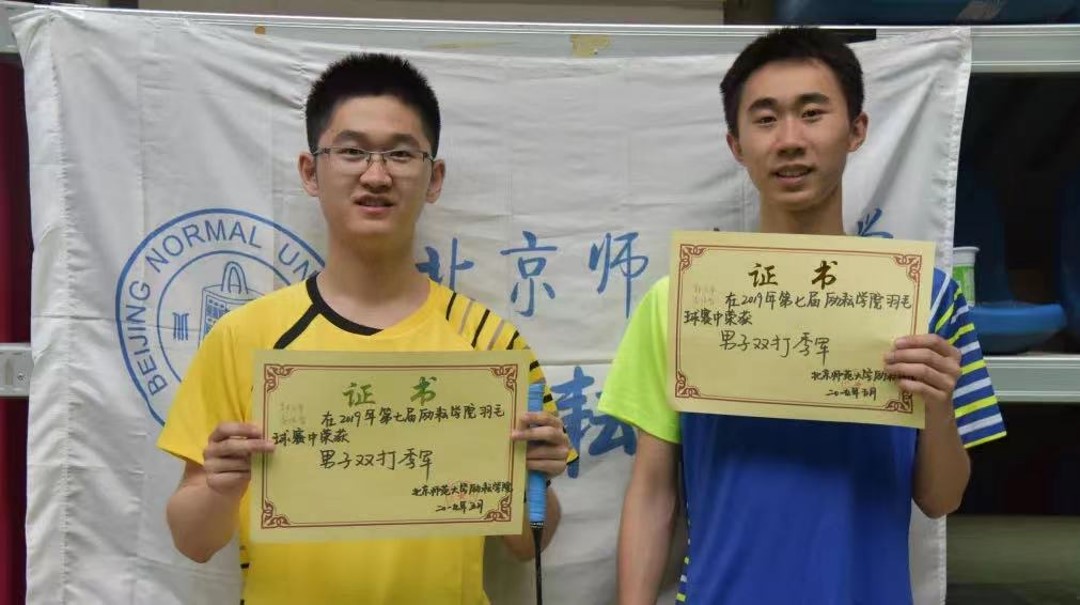 BEIJING NORMAL UN
北京师
学
耘
证书
在2019年第七届励耘学院羽毛
球赛中荣获
男子双打季军
北京师范大学励耘学院
二〇一九年五月
证书
在2019年第七届励耘学院羽毛
球赛中荣获
男子双打季军
北京师范大学励耘
二〇一九年五月